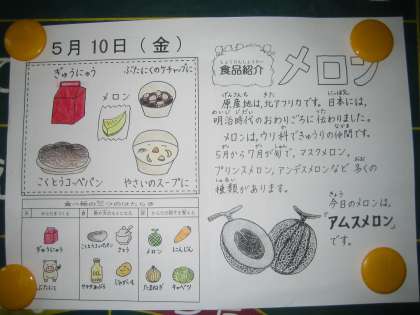 5月10日(金)
ぎゅうにゅう
ぶたにくのケチャップに
メロン
こくとうコッペパン
やさいのスープに
食べ物の三つのはたらき
ぎゅうにゅう
こくとうコッペパン
さとう
メロン
にんじん
ぶたにく
サラダあぶら
じゃがいも
たまねぎ
キャベツ
しょくひんしょうかい
食品紹介
メロン
げんさんち きた にほん
原産地は、北アフリカです。日本には、
めいじ じだい つた
明治時代のおわりごろに伝わりました。
か なかま
メロンは、ウリ科できゅうりの仲間です。
5月から7月が旬で、マスクメロン、
プリンスメロン、アンデスメロンなど多くの
しゅるい
種類があります。
きょう
今日のメロンは、
「アムスメロン」
です。